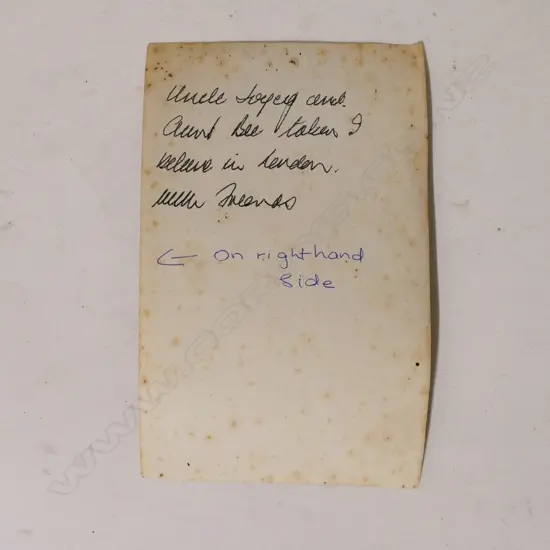 Uncle and.
Aunt Bee taken I
believe in London.
with Friends
← On righthand
side